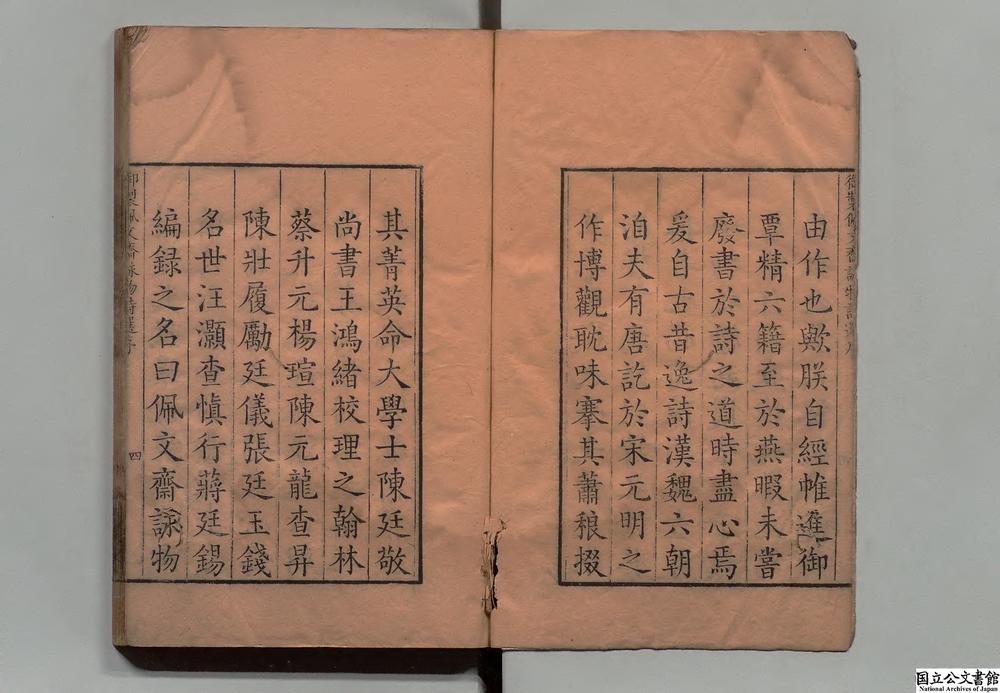 由作也歟朕自經帷進御
覃精六籍至於燕暇未嘗
廢書於詩之道時盡心焉
爰自古昔逸詩漢魏六朝
洎夫有唐訖於宋元明之
作博觀耽味搴其蕭稂掇
其菁英命大學士陳廷敬
尚書王鴻緒校理之翰林
蔡升元楊瑄陳元龍查昇
陳壯履勵廷儀張廷玉錢
名世汪灝查慎行蔣廷錫
編録之名曰佩文齋詠物
御製佩文齋詠物詩選序
四
国立公文書館
National Archives of Japan